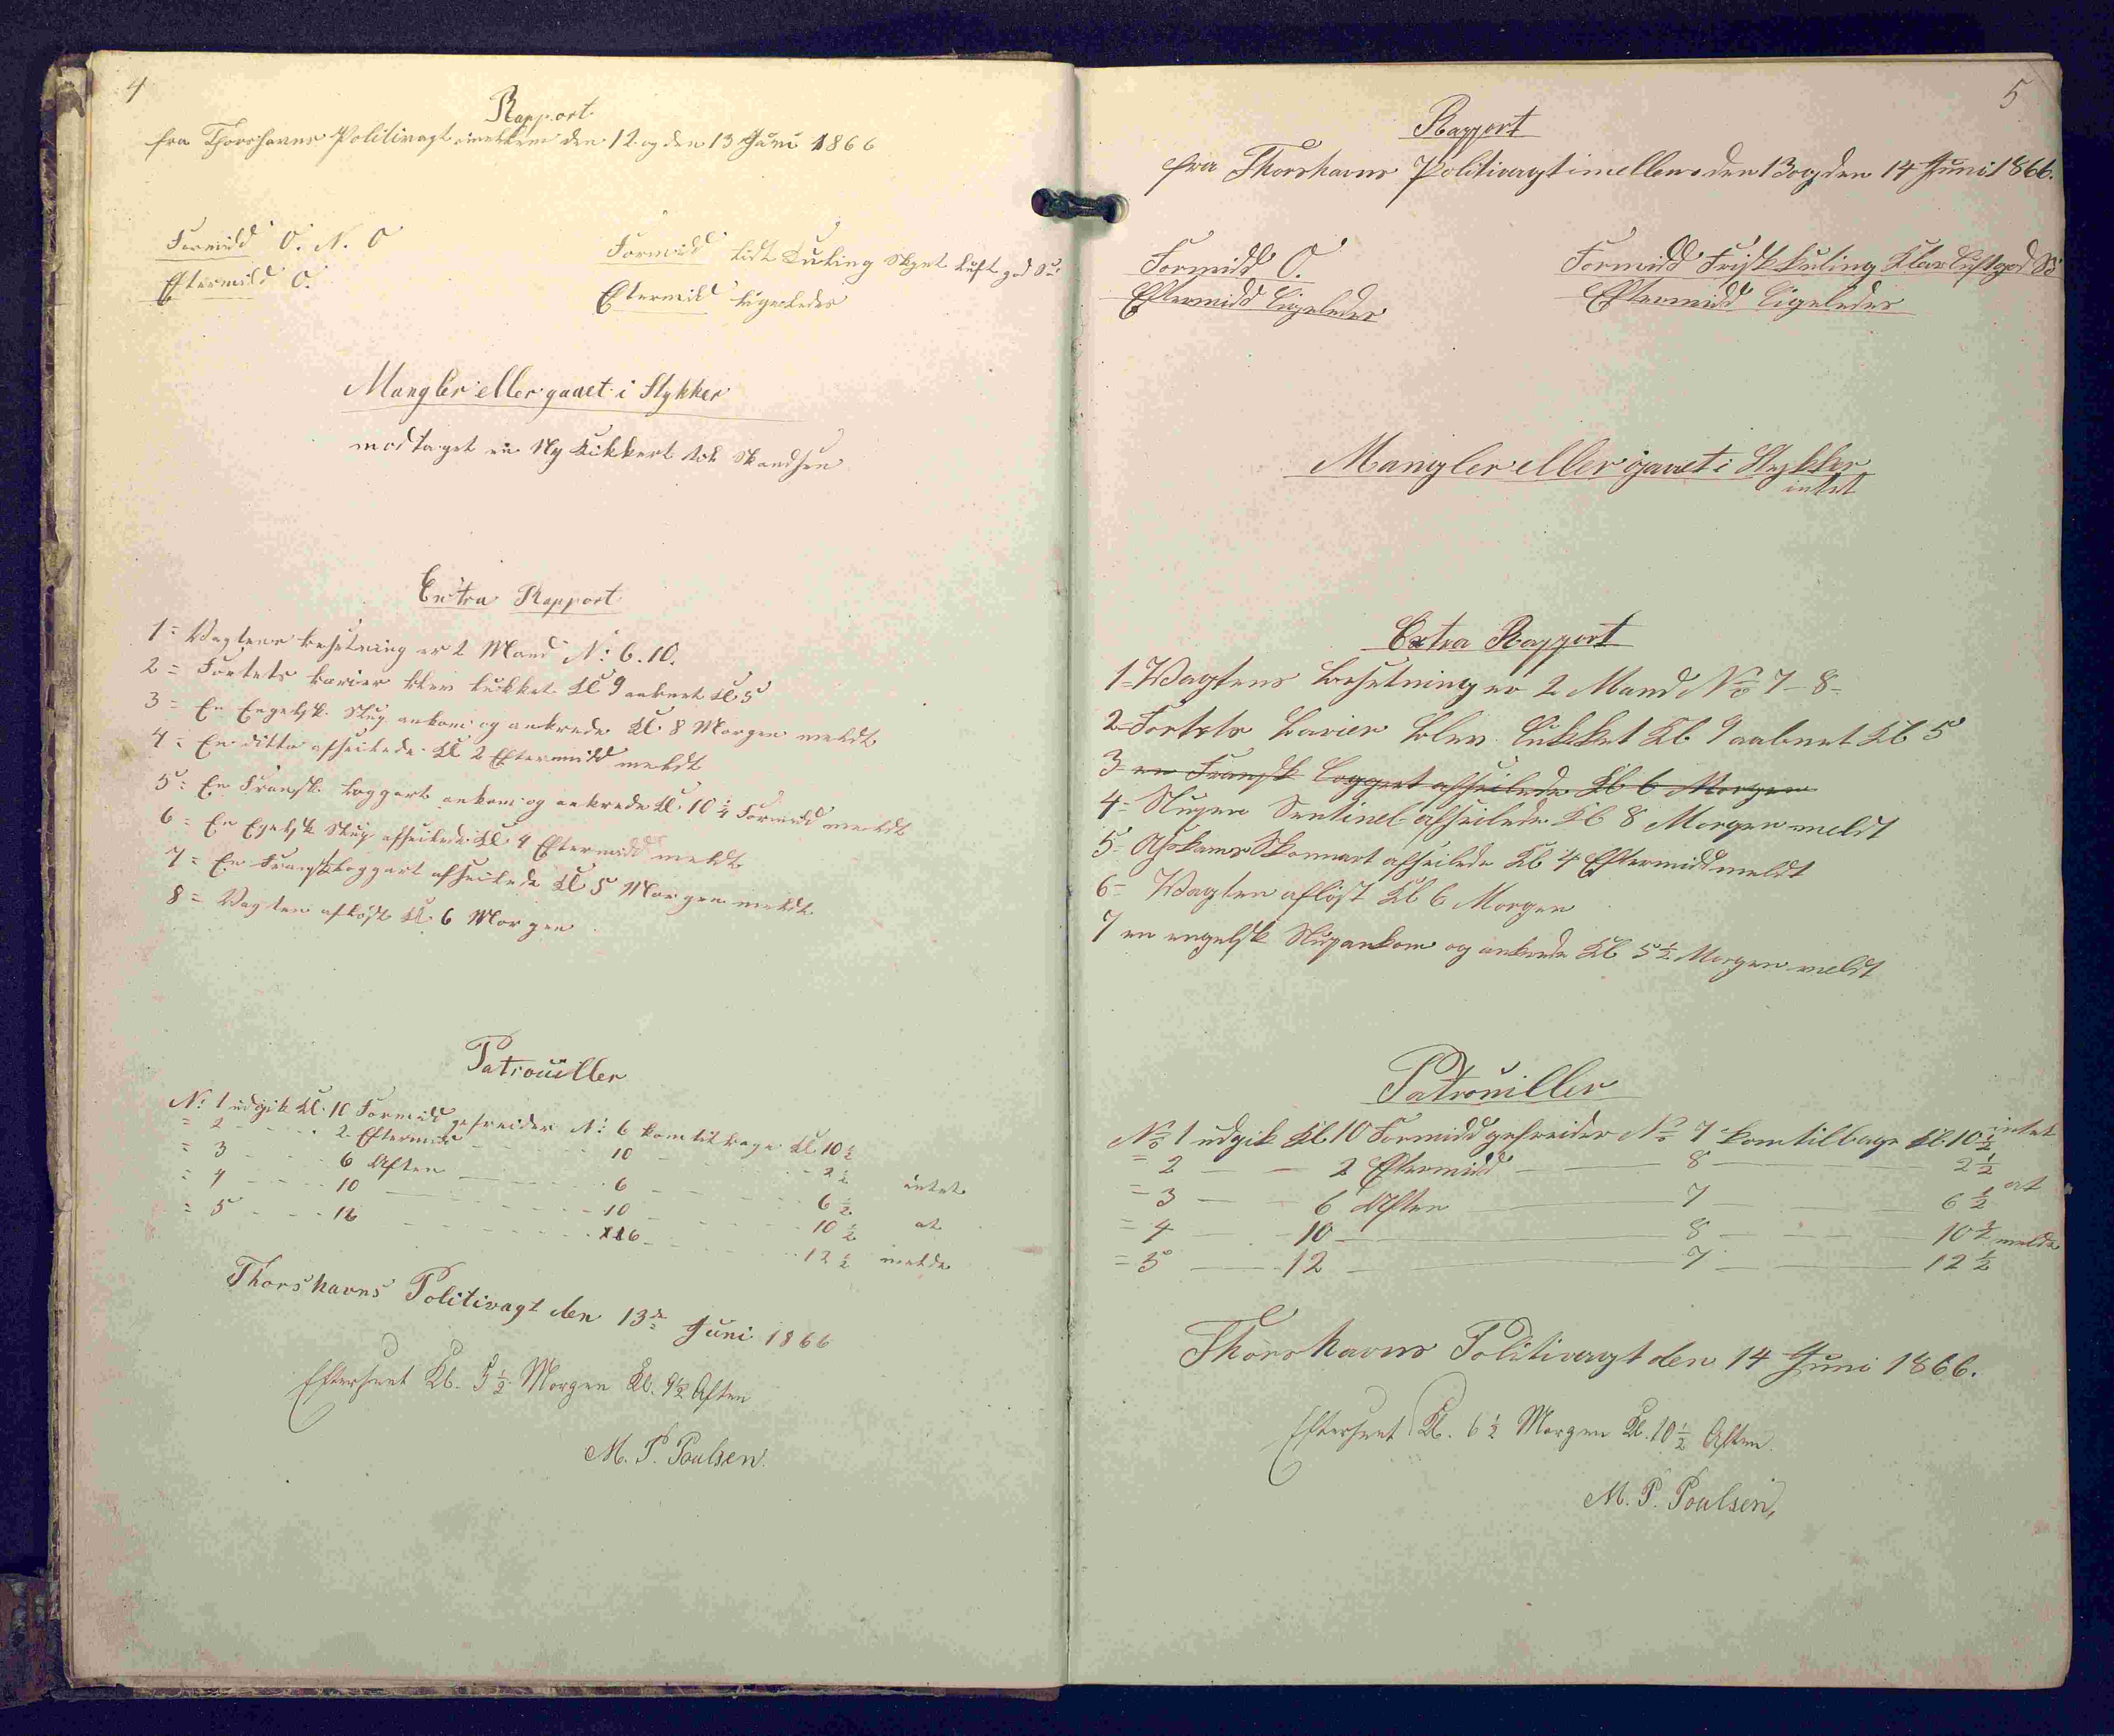 4
Rapport
fra Thorshavns Politivagt imellem den 12 og den 13 Juni 1866
Formidd O. N. O
Eftermidd O.
Formidd lidt Kuling Skyet luft god Sø
Eftermidd ligeledes
Mangler eller gaaet i Stykker
modtaget en Ny Kikkert til Skandsen
Extra Rapport
1= Vagtens besetning er 2 Mand No 6. 10.
2= Fortets barier blev lukket Kl 9 aabnet Kl. 5
3= En Engelsk Slup ankom og ankrede Kl. 8 Morgen meldt
4= En ditto afseilede Kl 2 Eftermidd meldt
5= En Fransk loggert ankom og ankrede Kl. 10 1/4 Formidd meldt
6= En Egelsk Slup afseilede Kl 4 Eftermidd meldt
7= En Fransk loggart afseilede Kl 5 Morgen meldt
8= Vagten afløst Kl. 6 Morgen
Patrouiller
No 1 udgik Kl. 10 Formidd gefreider No 6 kom tilbage Kl 10 1/2
= 2 - - - - 2 Eftermid - - 10 - - - 2 1/2 intet
= 3 - - - 6 Aften - - 6 - - - 6 1/2
= 4 - - - 10 - - - 10 - - - 10 1/2 at
= 5 - - - 12 - - - 6 - - - 12 1/2 melde
Thorshavns Politivagt den 13de Juni 1866
Efterseet Kl. 5 1/2 Morgen Kl. 9 1/2 Aften
M. P. Poulsen.
5
Rapport
fra Thorshavns Politivagt imellem den 13 og den 14 Juni 1866.
Formidd O.
Eftermidd ligeledes
Formidd Frisk kuling Klar luft god Sø
Eftermidd ligeledes
Mangler eller gaaet i Stykker
intet
Extra Rapport
1= Vagtens besetning er 2 Mand No 7-8=
2= Fortets barier blev lukket Kl 9 aabnet Kl 5
3= en Fransk loggert afseilede Kl 6 Morgen
4= Slupen Sentinel afseilede Kl 8 Morgen meldt
5= Skonnart afseilede Kl 4 Eftermidd meldt
6= Vagten afløst Kl 6 Morgen
7 en engelsk Slup ankom og ankrede Kl 5 1/2 Morgen meldt
Patrouiller
No 1 udgik Kl 10 Formidd gefreider No 7 kom tilbage Kl 10 1/2 intet
= 2 — — 2 Eftermidd — — 8 — 2 1/2
= 3 — — 6 Aften — 7 — — 6 1/2 at
= 4 — - 10 — 8 - — — 10 1/2 melde
= 5 — 12 — 7 — — 12 1/2
Thorshavns Politivagt den 14 Juni 1866.
Efterseet Kl. 6 1/2 Morgen Kl. 10 1/2 Aften.
M. P. Poulsen,